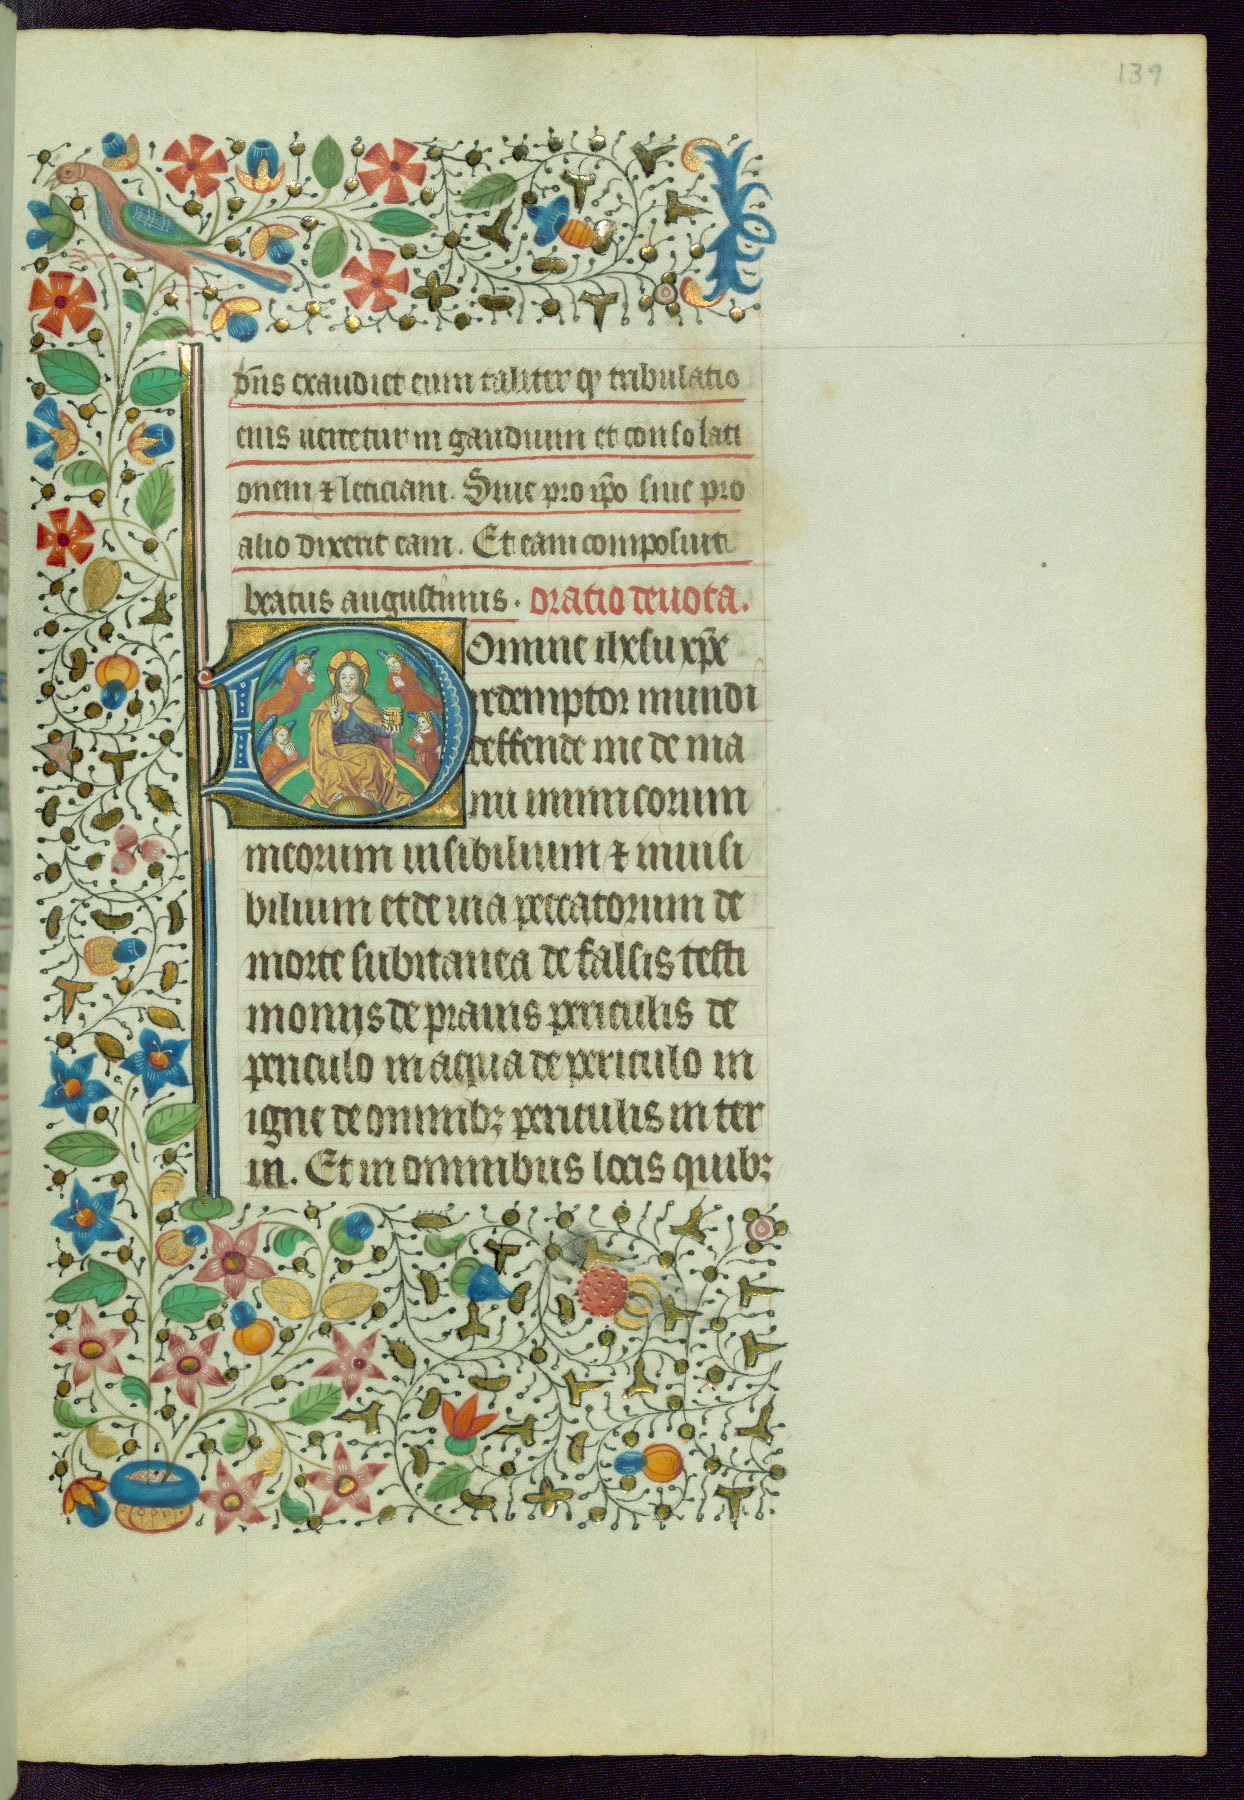 139
dn̄s exaudiet eum taliter qꝫ tribulatio
eius uertetur in gaudium et consolati
onem ⁊ leticiam. Siue pro ip̄o siue pro
alio dixerit eam. Et eam composuit
beatus augustinus. Oratio deuota.
Domine ihesu xp̄e
redemptor mundi
deffende me de ma
nu inimicorum
meorum uisibilium ⁊ inuisi
bilium et de uia peccatorum de
morte subitanea de falsis testi
monijs de prauis periculis de
periculo in aqua de periculo in
igne de omnibꝫ periculis in ter
in. Et in omnibus locis quibꝫ